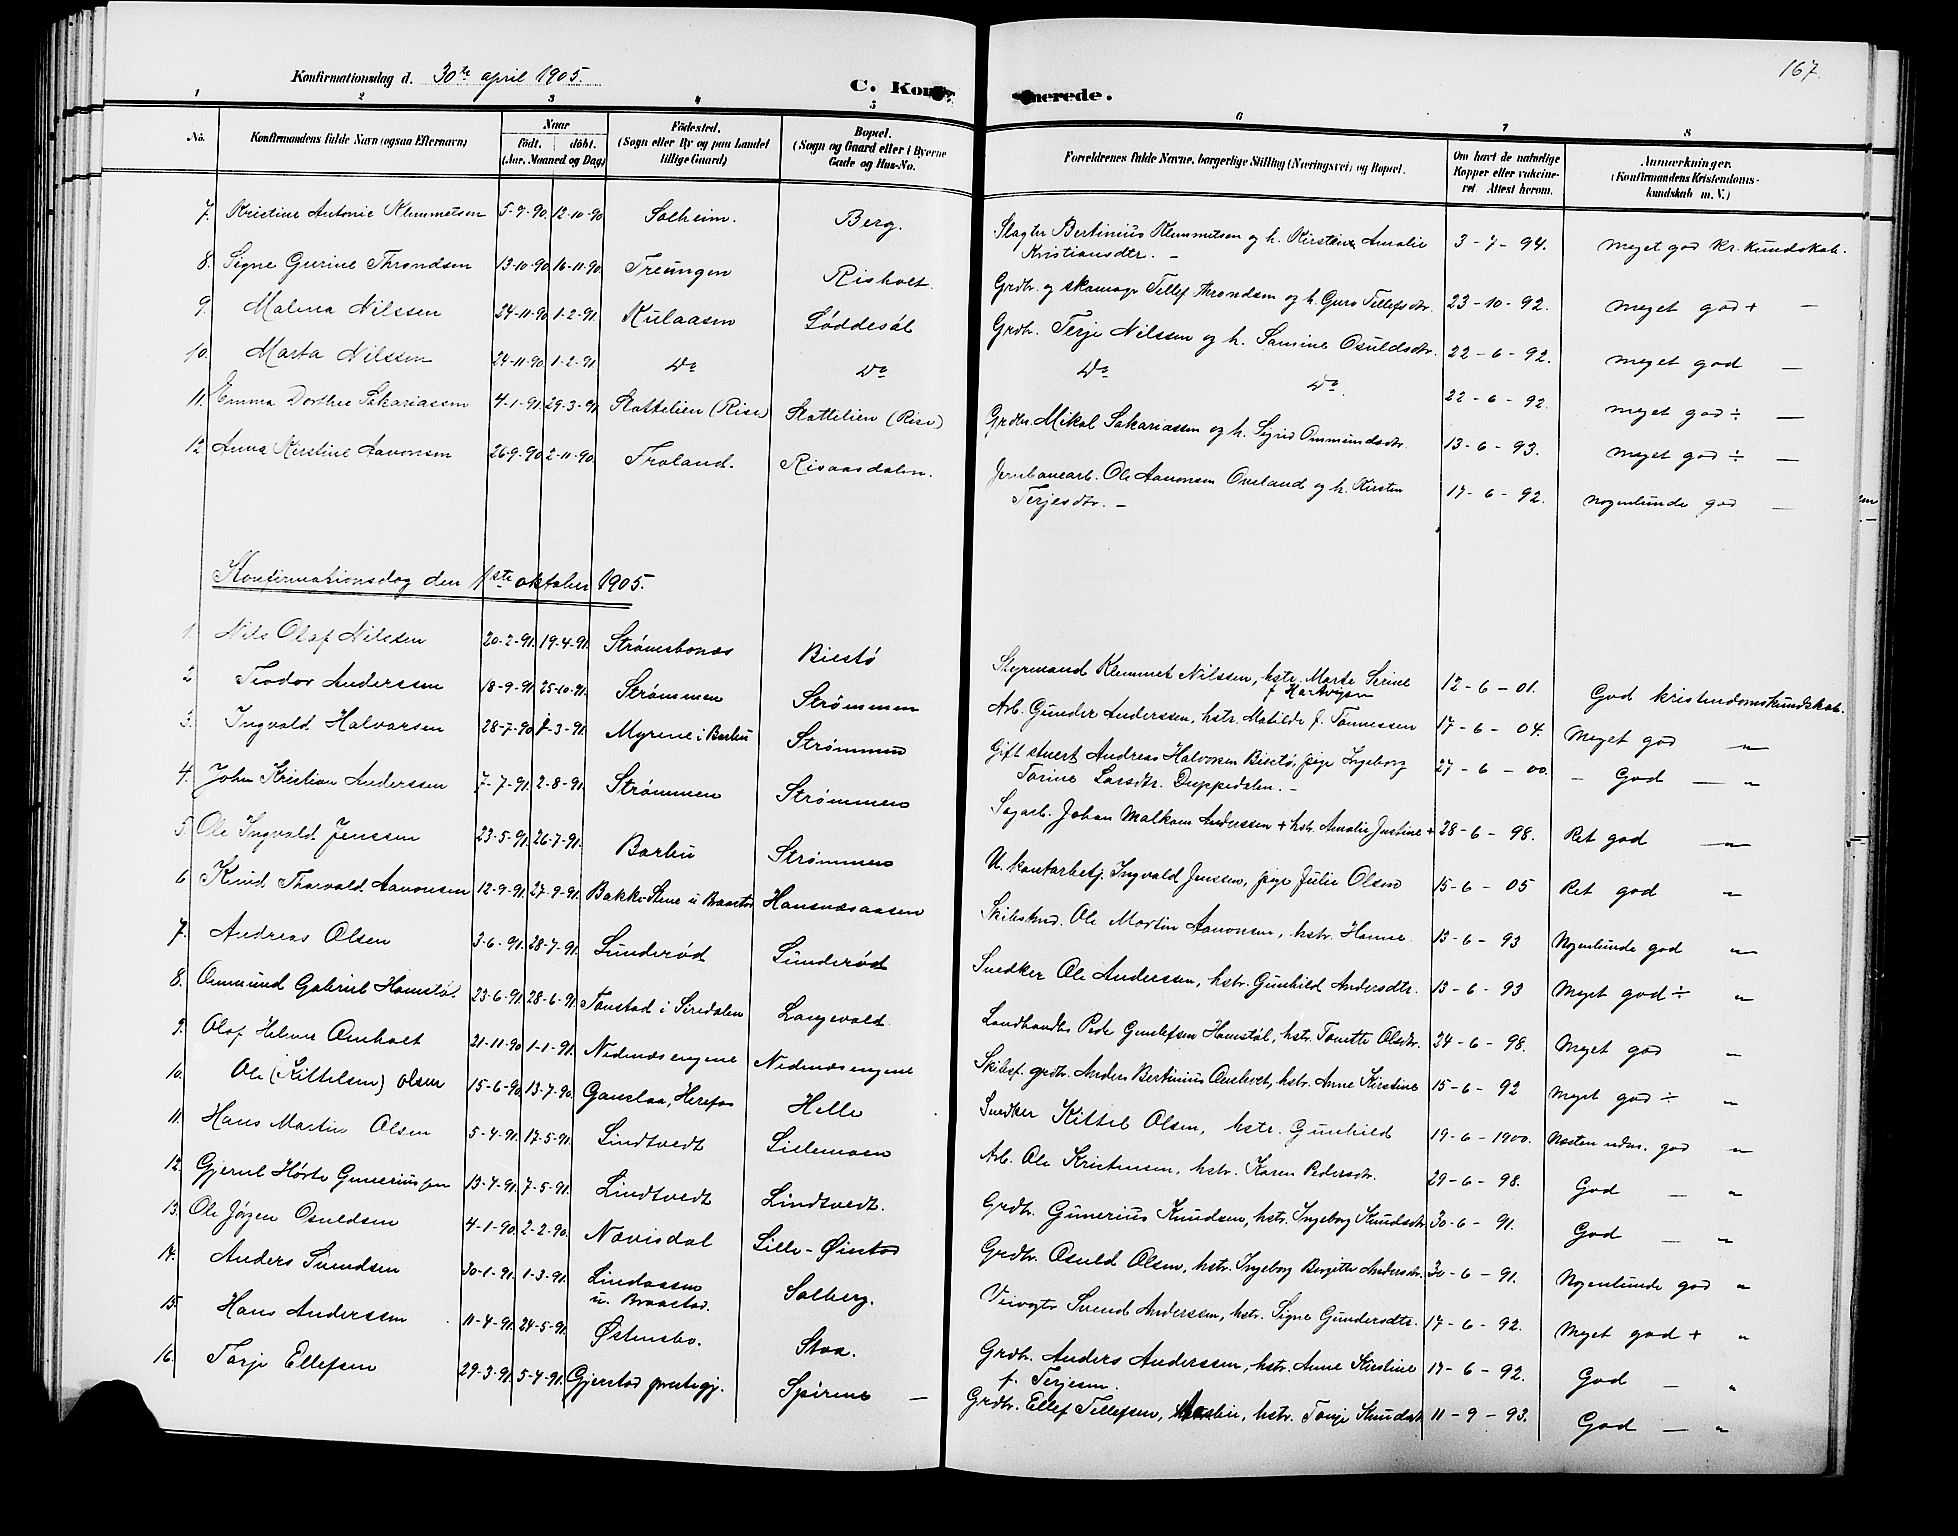 Konfirmationsdag d. 30te april 1905.
C. Kon
merede.
167.
1 2 3 4 5 6 7 8
No.
Konfirmandens fulde Navn (ogsaa Efternavn)
Naar
födt. döbt.
(Aar, Maaned og Dag)
Födested.
(Sogn eller By og paa Landet
tillige Gaard)
Bopæl.
(Sogn og Gaard eller i Byerne
Gade og Hus-No.
Forældrenes fulde Navne, borgerlige Stilling (Næringsvei) og Bopæl.
Om havt de naturlige
Kopper eller vakcine-
ret Attest herom.
Anmærkninger.
(Konfirmandens Kristendoms-
kundskab m. V.)
7. Kristine Antonie Klemmetsen 5-9-90 12-10-90 Solheim. Berg. Slagter Bertinius Klemmetsen og h. Kirstine Amalie 3-7-94. meget god kr. kundskab.
Kristiansdtr. –
8. Signe Gurine Throndsen 13-10-90 16-11-90 Treungen Risholt. Grdbr. og skomager Tellef Throndsen og h. Guro Tellefsdtr. 23-10-92. meget god + –
9. Malena Nilssen 24-11-90 1-2-91 Kulaasen Løddesøl Grdbr. Terje Nilssen og h. Samine Osuldsdtr. 22-6-92. meget god –
10. Marta Nilssen 24-11-90 1-2-91 Do Do Do Do. 22-6-92. meget god ÷ –
11. Emma Dorthea Sakariassen 4-1-91 29-3-91 Slottelien (Rise) Slottelien (Rise) Grdbr. Mikal Sakariassen og h. Sigrid Ommundsdtr. 13-6-93. meget god ÷ –
12. Anna Kirstine Aanonsen 26-9-90 2-11-90 Froland. Risaasdalen. Jernbanearb. Ole Aanonsen Oveland og h. Kirsten 17-6-92. nogenlunde god –
Terjesdtr. –
Konfirmationsdag den 1ste oktober 1905.
1. Nils Olaf Nilssen 20-2-91 19-4-91 Strømsbonæs Biestø Styrmand Klemmet Nilssen, hstr. Marte Serine 12-6-01. God kristendomskundskab.
f. Hartvigsen
2. Teodor Anderssen 18-9-91 25-10-91 Strømmen Strømmen Arb. Gunder Anderssen, hstr. Matilde f. Tønnessen 17-6-04. Meget god „
3. Ingvald Halvorsen 28-7-90 -3-91 Myrene i Barbu Strømmen Gift stuert Andreas Halvorsen Biestø, pige Ingeborg 27-6-00. – God – „
Torine Larsdtr. Duppedalen. –
4. John Kristian Anderssen 7-7-91 2-8-91 Strømmen Strømmen Sagarb. Johan Malkom Anderssen + hstr. Amalie Justine + 28-6-98. Ret god „
5. Ole Ingvald Jenssen 23-5-91 26-7-91 Barbu Strømmen U. kontorbetj. Ingvald Jenssen, pige Julie Olsen 15-6-05 Ret god „
6 Knud Thorvald Aanonsen 12-9-91 27-9-91 Bakkestene u Braastad Hansnæsaasen Skibstmd. Ole Martin Aanonsen, hstr. Hanne 13-6-93 Nogenlunde god „
7. Andreas Olsen 3-6-91 28-7-91 Lunderød Lunderød Snedker Ole Anderssen, hstr. Gunhild Andersdtr. 13-6-93 Meget god ÷ „
8. Ommund Gabriel Homstøl. 23-6-91 28-6-91 Tonstad i Siredalen Langevold. Landhandler Peder Gunlefsen Homstøl, hstr. Tonette Olsdtr. 24-6-98. Meget god „
9. Olaf Helmer Omholt 21-11-90 1-1-91 Nedenæsengene Nedenæsengene Skibsf. grdbr. Anders Bertinius Omholt, hstr. Anne Kirstine 15-6-92 Meget god ÷ „
10. Ole (Kittelsen) Olsen 15-6-90 13-7-90 Ganslaa, Herefos Helle Snedker Kittel Olsen, hstr. Gunhild 19-6-1900. Næsten udm. god „
11. Hans Martin Olsen 5-4-91 17-5-91 Lindtvedt Lillemoen Arb. Ole Kristensen, hstr. Karen Pedersdtr. 29-6-98. God – „
12. Gjerul Hørte Guneriussen 13-4-91 7-5-91 Lindtvedt Lindtvedt. Grdbr. Gunerius Knudsen, hstr. Ingeborg Knudsdtr 30-6-91. God – „
13. Ole Jørgen Osuldsen 4-1-90 2-2-90 Nævisdal Lille-Øinstad Grdbr. Osuld Olsen, hstr. Ingeborg Birgitte Andersdtr. 30-6-91. Nogenlunde god „
14. Anders Svendsen 30-1-91 1-3-91 Lindaasen Solberg. Veivogter Svend Anderssen, hstr. Signe Gundersdtr. 17-6-92. Meget god + „
u. Braastad.
15. Hans Anderssen 11-4-91 24-5-91 Østensbo. Stoa. Grdbr. Anders Anderssen, hstr. Anne Kirstine 17-6-92. God – „
f. Terjesen.
16. Terje Ellefsen 29-3-91 5-4-91 Gjerstad prestegj. Spirene – Grdbr. Ellef Tellefsen, hstr. Tonje Knudsdt 11-9-93. God – „